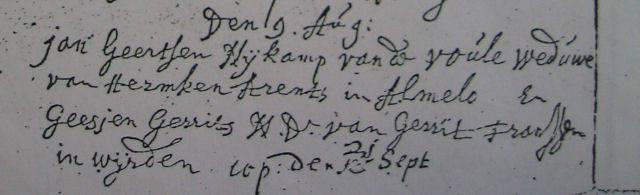 Den 9. Aug:
jan Geertsen Nijkamp van de voule weduwe
van Hermken Arents in Almelo En
Geesjen Gerrits N Dr van Gerrit Franssen
in wijrden cop: den 21 Sept